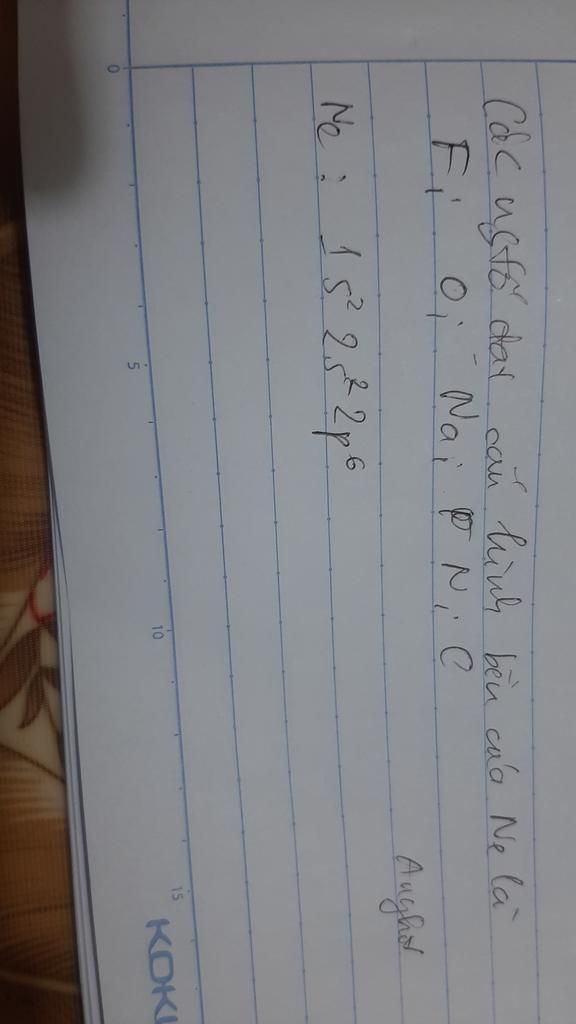 Các ngtố đạt cấu hình bền của Ne là
F; O; Na; N; C
Ne: 1s² 2s² 2p⁶
0
5
10
15
KOKU